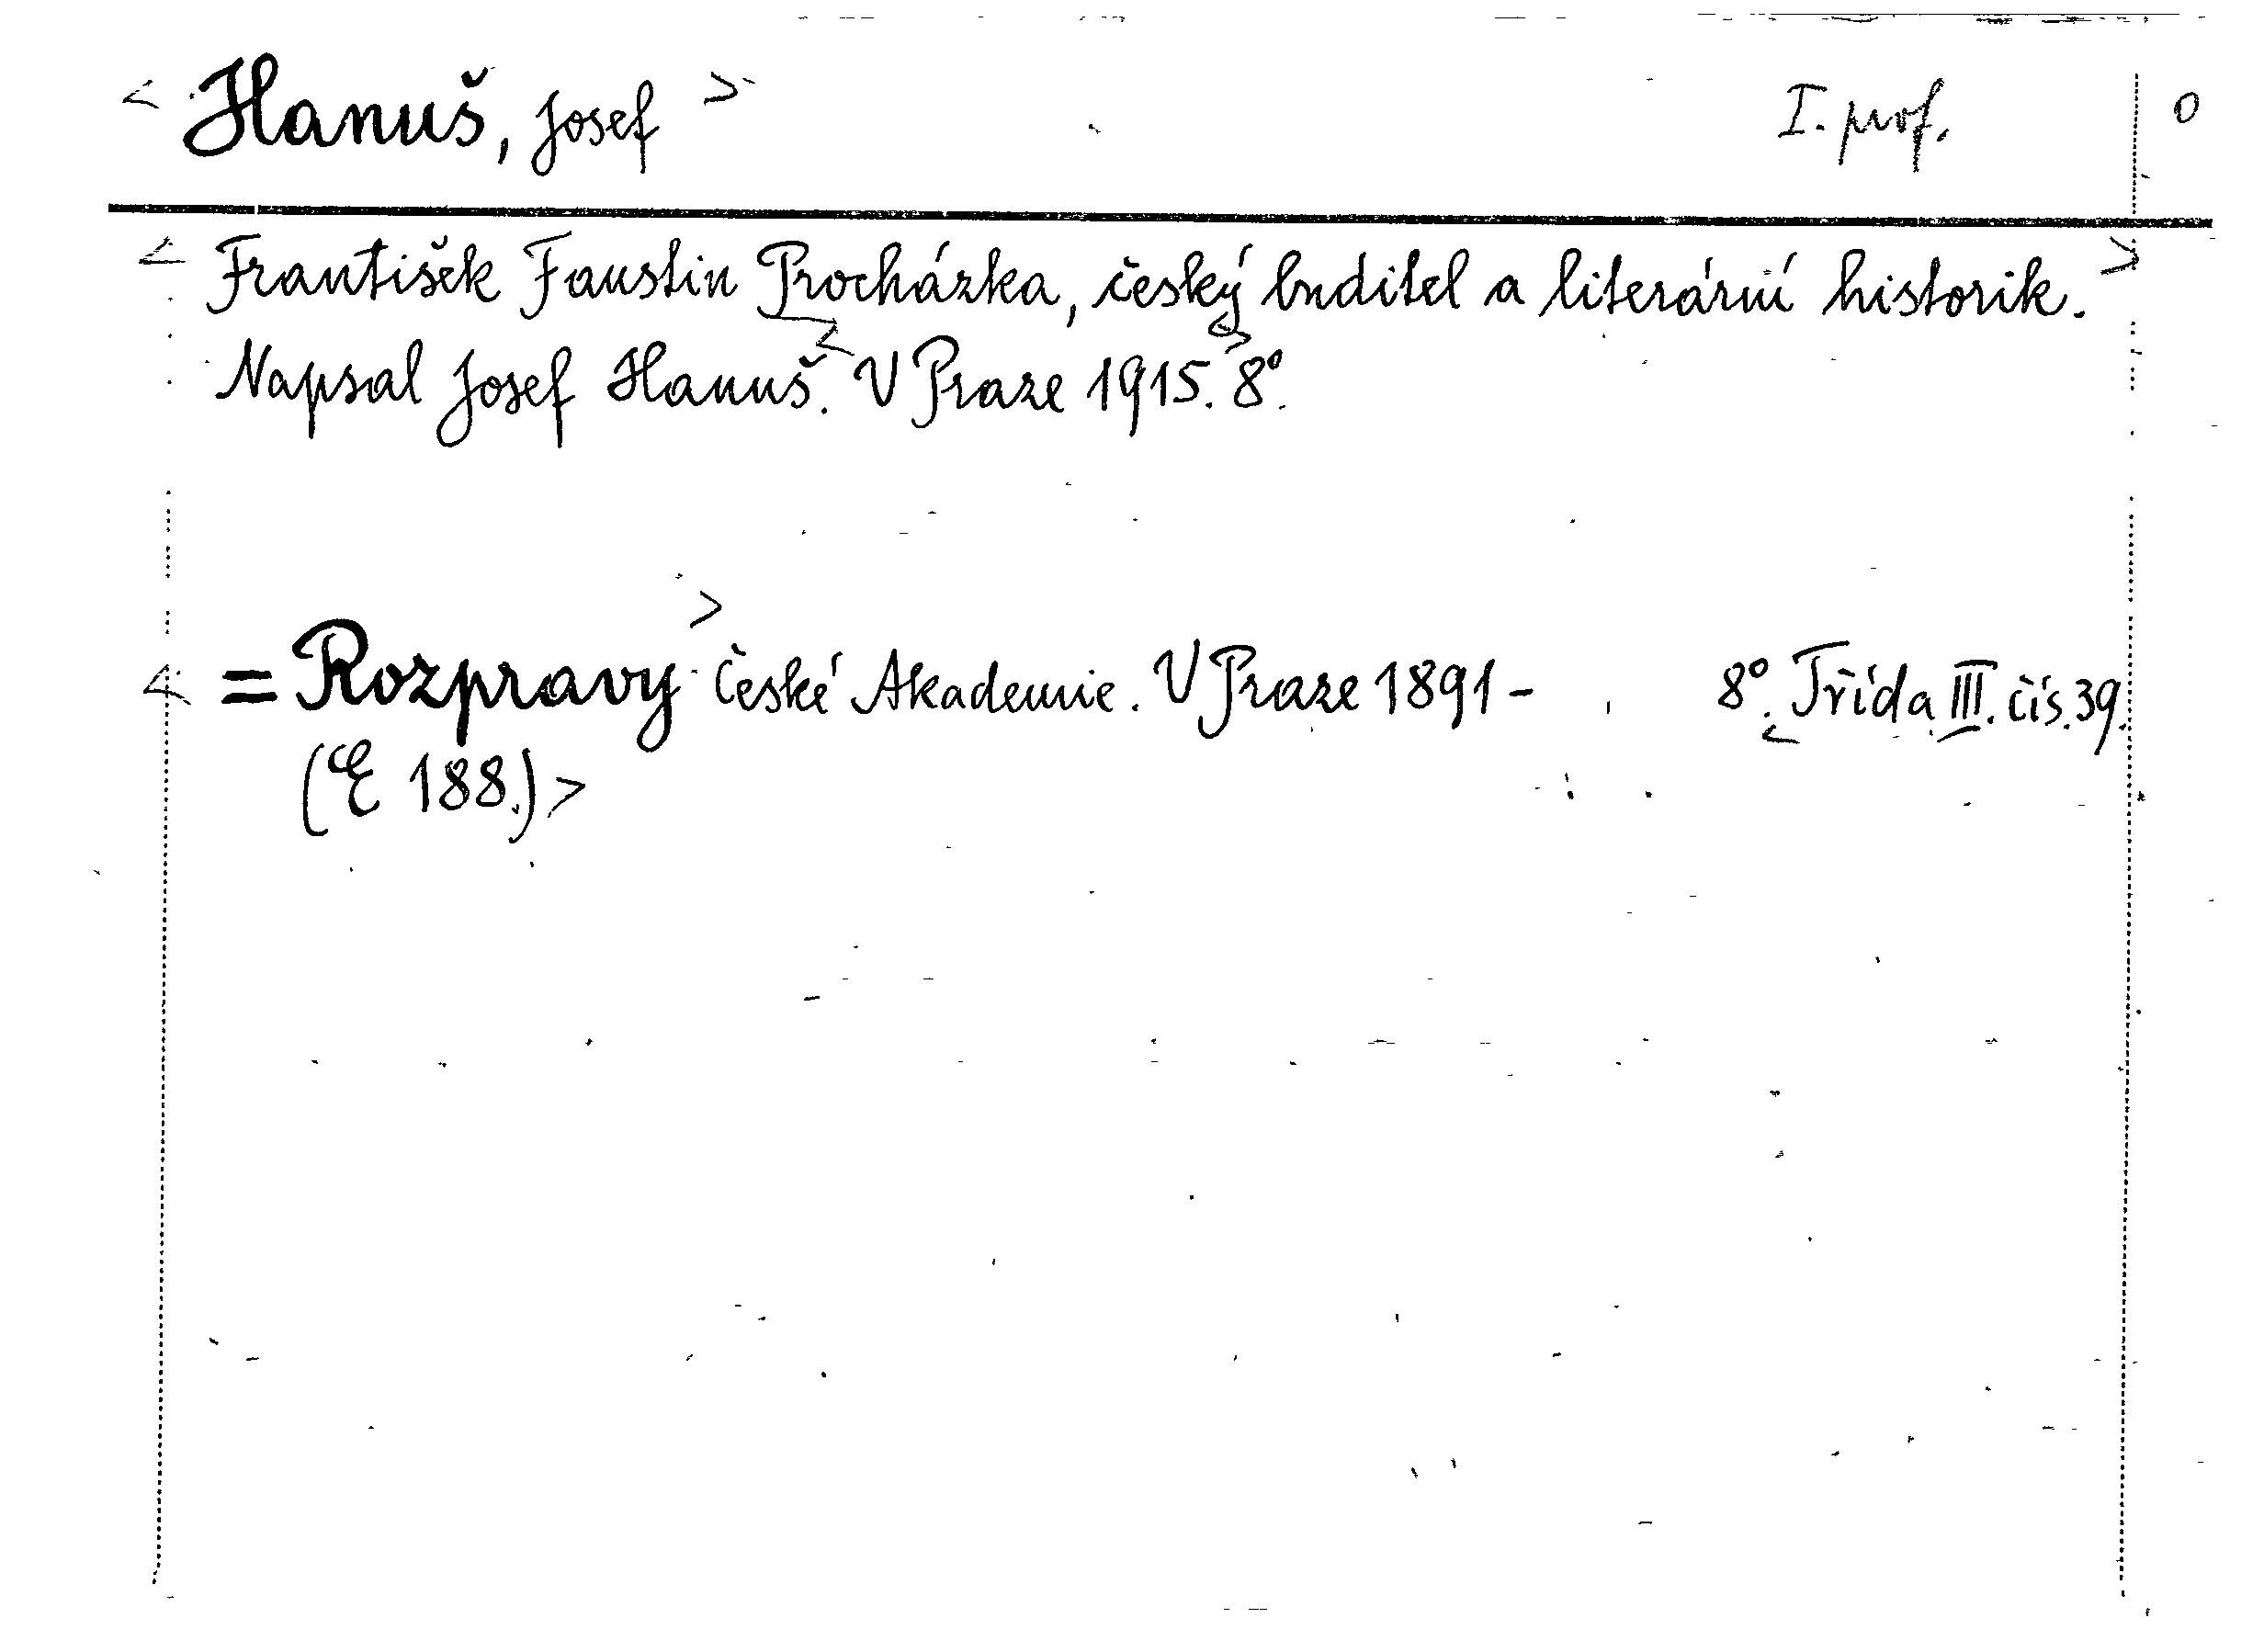 < Hanuš, Josef > I. prof. 0
< František Faustin Procházka, český buditel a literární historik. >
Napsal Josef Hanuš. < V Praze 1915. > 8°.
< = Rozpravy > České Akademie. V Praze 1891- 8°. < Třída III. čís. 39.
(E 188.) >